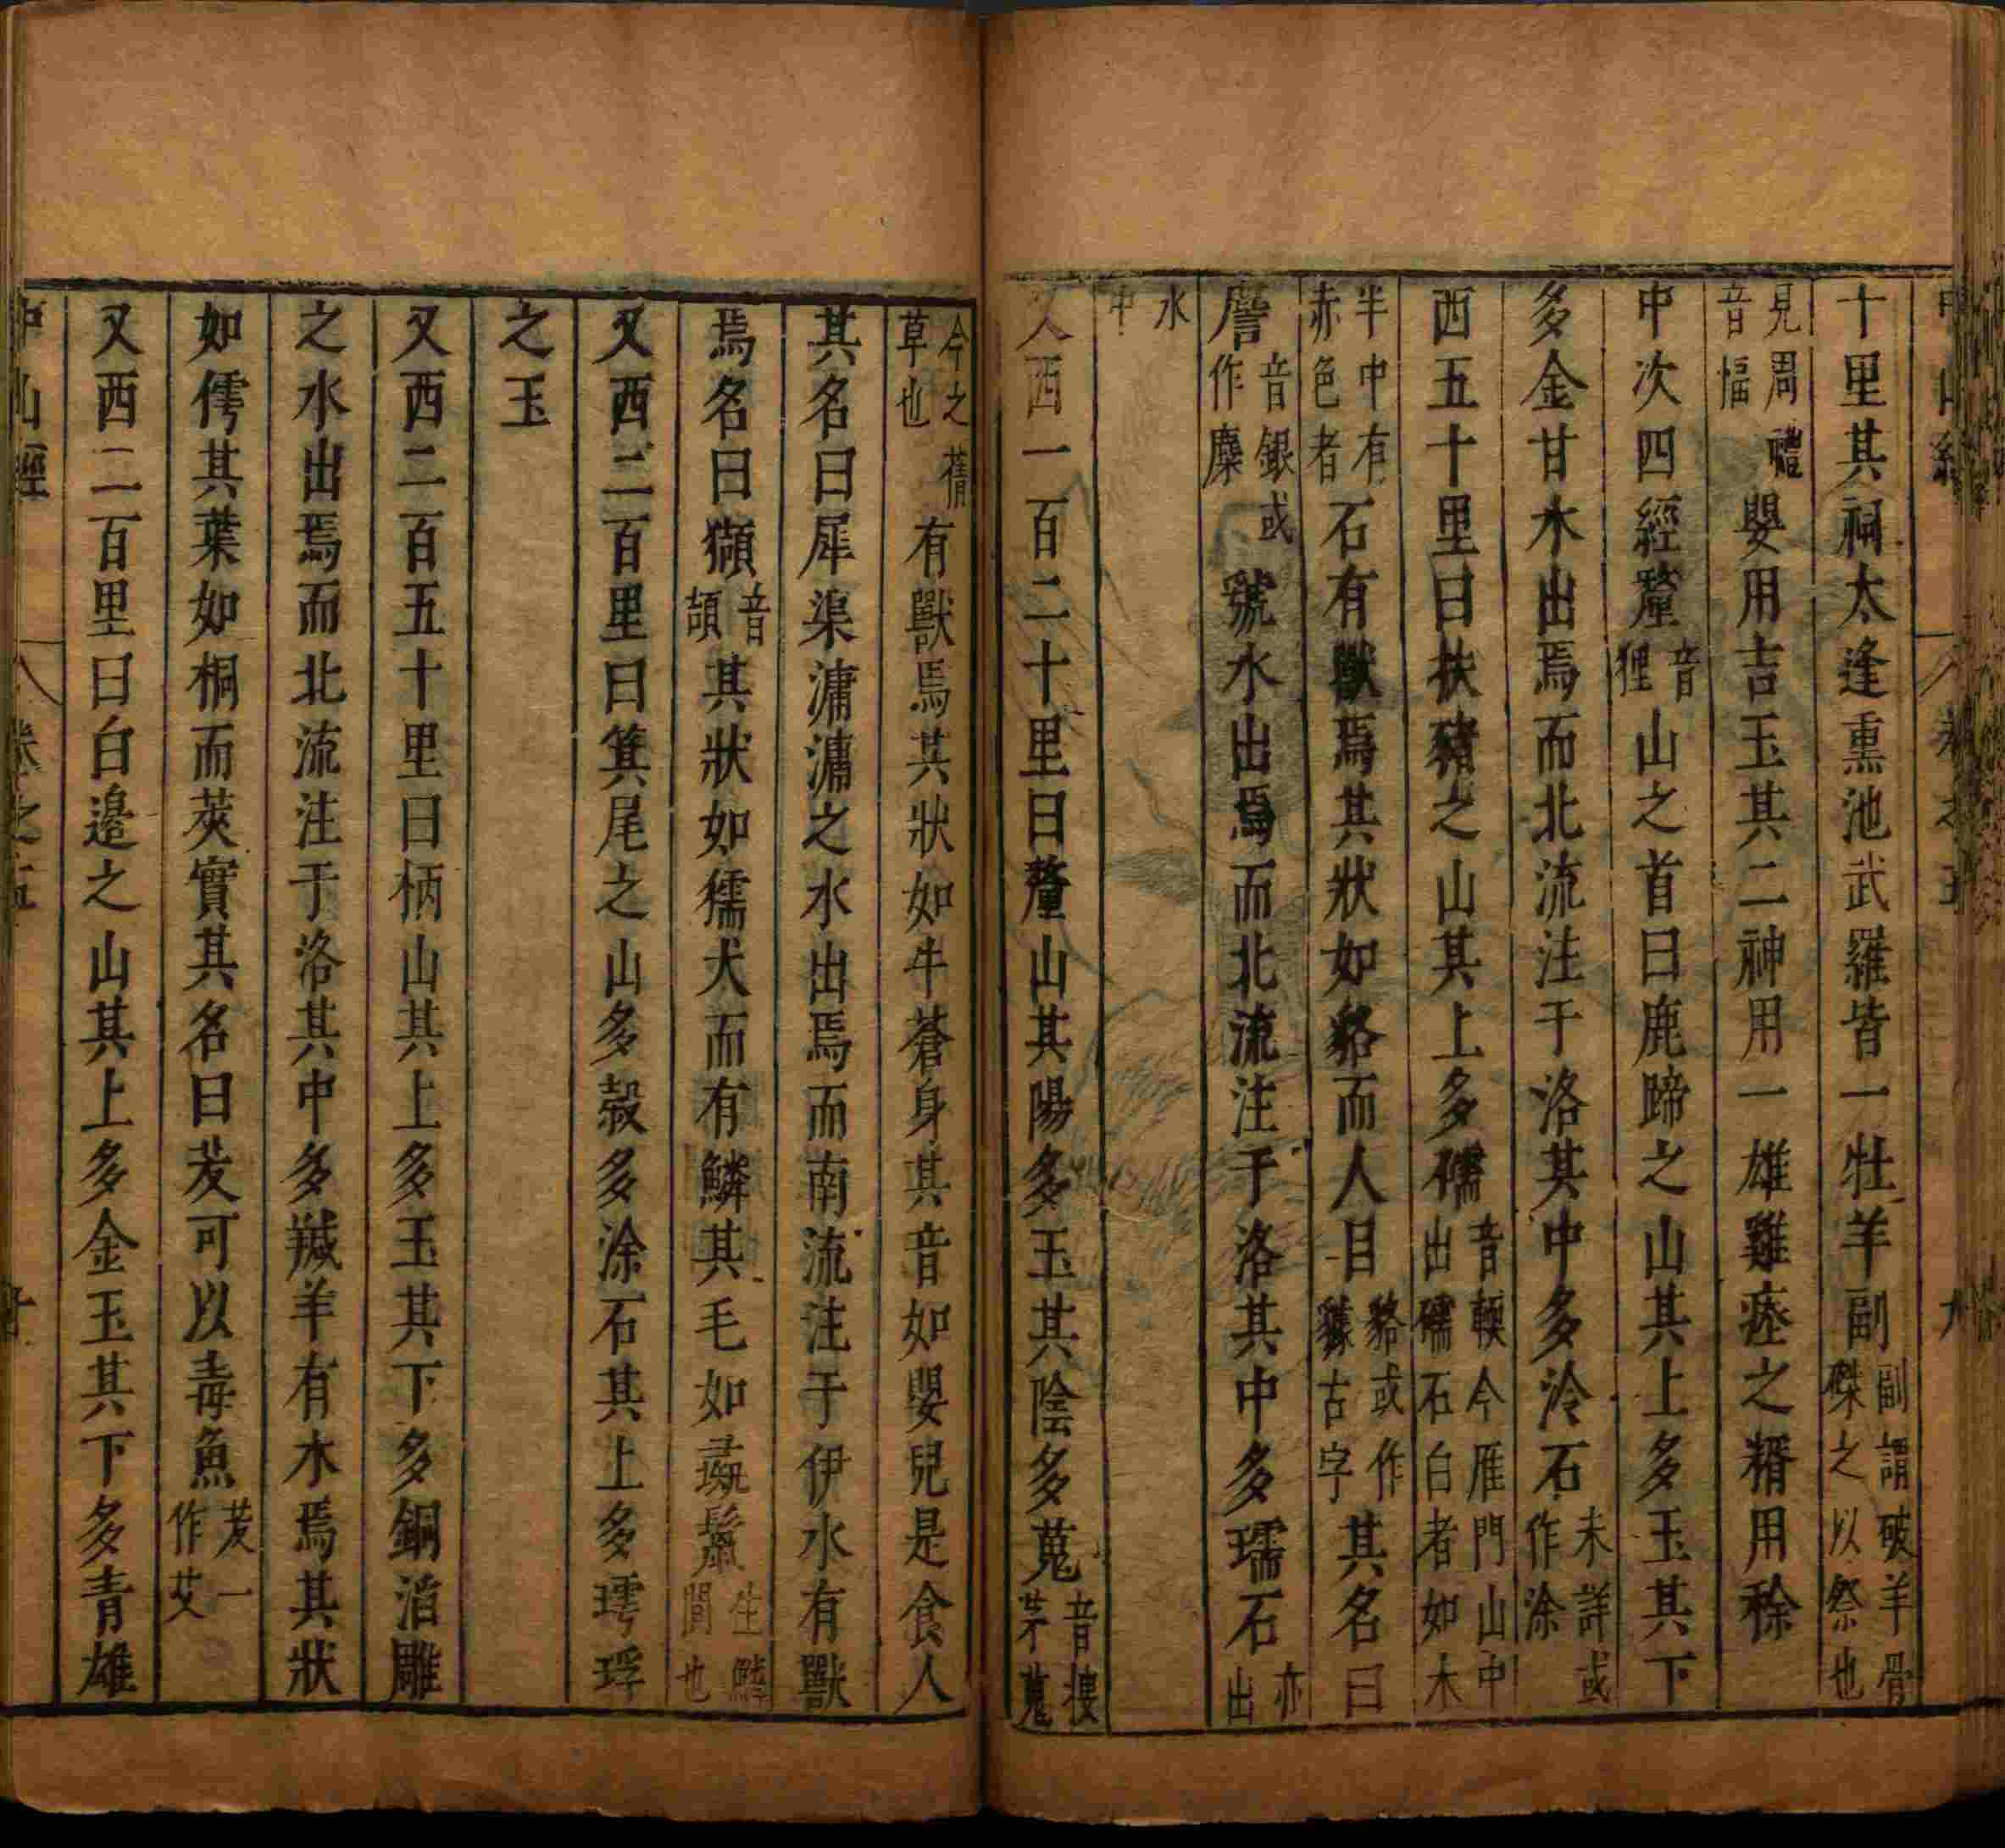 中山經 卷之五 九
十里其祠太逢熏池武羅皆一牡羊副副謂破羊骨磔之以祭也
見周禮音愊嬰用吉玉其二神用一雄雞瘞之糈用稌
中次四經釐音狸山之首曰鹿蹄之山其上多玉其下
多金甘水出焉而北流注于洛其中多泠石未詳或作涂
西五十里曰扶豬之山其上多礝音輭今雁門山中出礝石白者如水
半中有赤色者石有獸焉其狀如貉而人目貉或作㺄古字其名曰
䴦音銀或作麋虢水出焉而北流注于洛其中多瓀石亦出
水中
又西一百二十里曰釐山其陽多玉其陰多蒐音搜茅蒐
今之蒨草也有獸焉其狀如牛蒼身其音如嬰兒是食人
其名曰犀渠滽滽之水出焉而南流注于伊水有獸
焉名曰獺音頡其狀如獳犬而有鱗其毛如彘鬣生鱗間也
又西二百里曰箕尾之山多榖多涂石其上多㻬琈
之玉
又西二百五十里曰柄山其上多玉其下多銅滔雕
之水出焉而北流注于洛其中多羬羊有木焉其狀
如樗其葉如桐而莢實其名曰茇可以毒魚茇一作艾
又西二百里曰白邉之山其上多金玉其下多青雄
中山經 卷之五 十